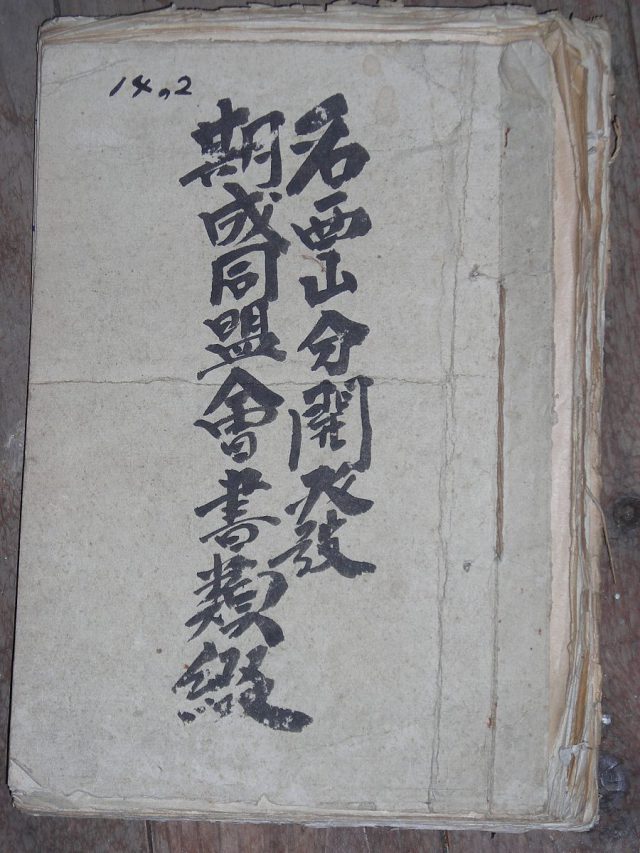 14.2
名西山分開發
期成同盟會書類綴